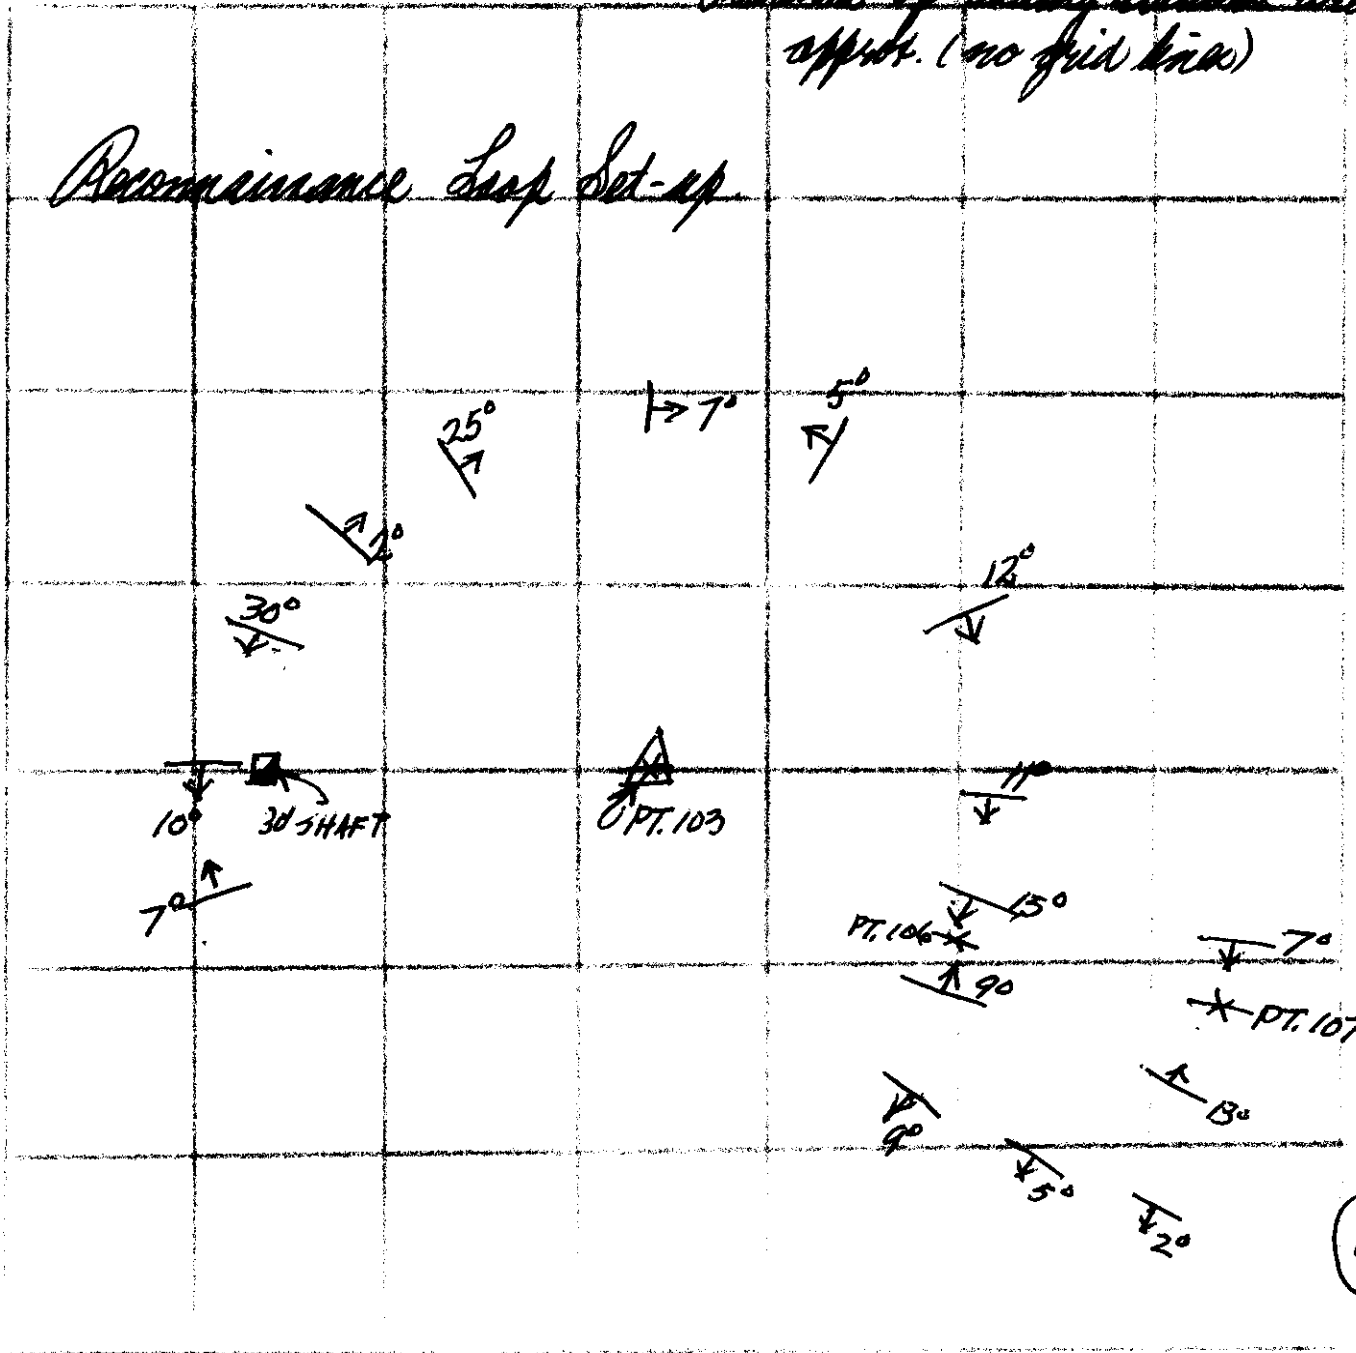 approx. (no grid lines)
Reconnaissance Loop Set-up
5°
7°
25°
2°
12°
30°
11°
10°
3d SHAFT
PT. 103
7°
15°
PT. 106
7°
9°
PT. 107
13°
9°
5°
2°